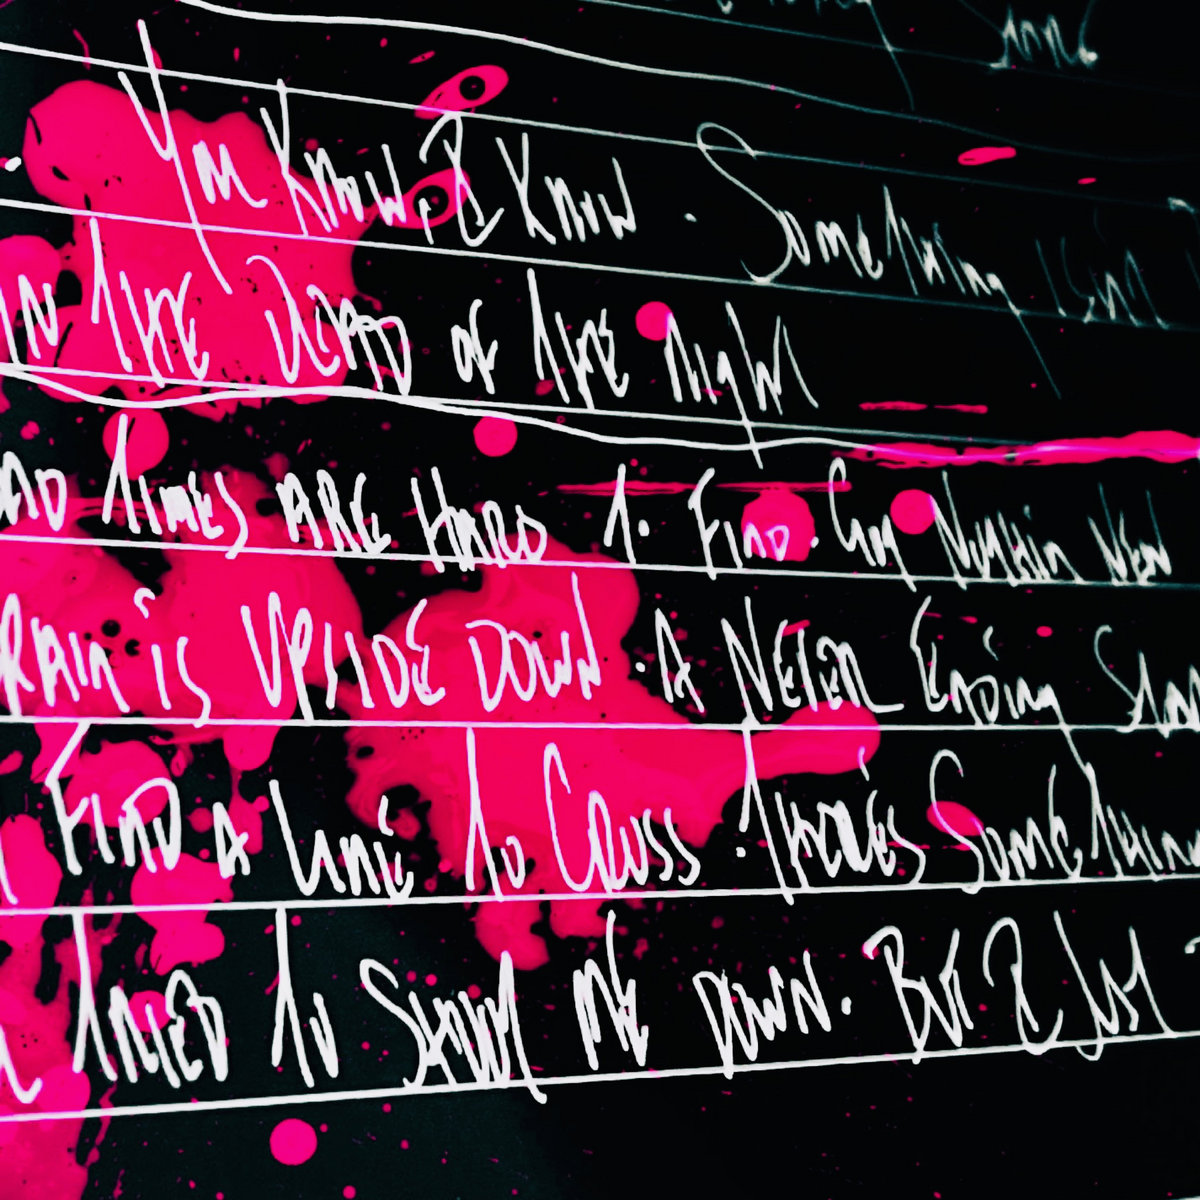 You Know, I Know. Something isn't
in the Dead of the night
and Times are Hard to. Find. Nothin New
Brain is Upside Down. A Never Ending
Find a Line to Cross. There's Something
Tried to Shout me Down. But I Just